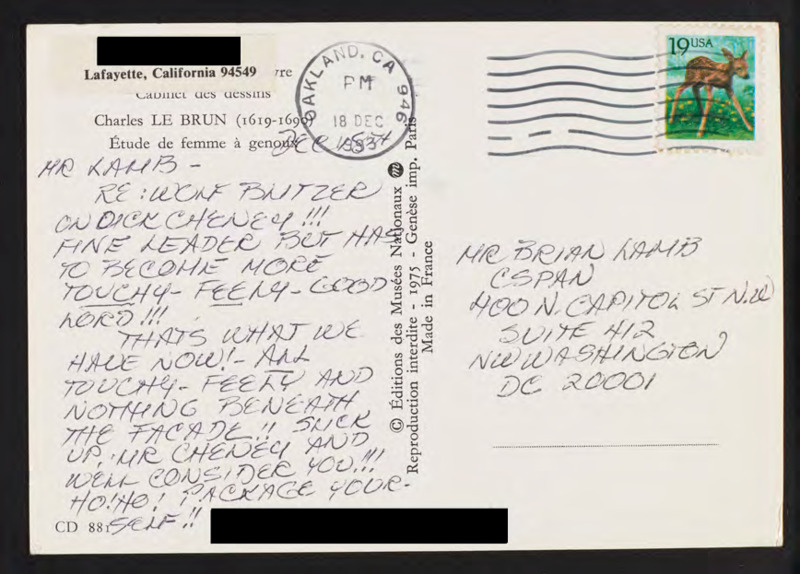 Lafayette, California 94549
vre
Cabinet des dessins
Charles LE BRUN (1619-1690)
Étude de femme à genoux
OAKLAND, CA 946
PM
18 DEC
1993
19 USA
DEC 15TH
MR LAMB -
RE: WOLF BLITZER
ON DICK CHENEY!!!
FINE LEADER BUT HAS
TO BECOME MORE
TOUCHY-FEELY-GOOD
LORD!!!
THAT'S WHAT WE
HAVE NOW! - ALL
TOUCHY-FEELY AND
NOTHING BENEATH
THE FACADE!! SLICK
UP, MR CHENEY AND
WE'LL CONSIDER YOU!!!
HO! HO! PACKAGE YOUR-
SELF!!
CD 881
© Éditions des Musées Nationaux
Reproduction interdite - 1975 - Genèse imp. Paris
Made in France
MR BRIAN LAMB
CSPAN
400 N. CAPITOL ST N.W
SUITE 412
NW WASHINGTON
DC 20001